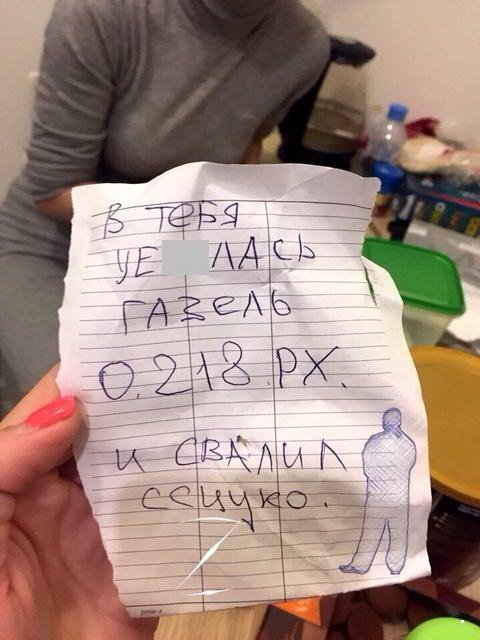 В ТЕБЯ
УЕ ЛАСЬ
ГАЗЕЛЬ
О.218.РХ.
И СВАЛИЛ
ССЦУКО.